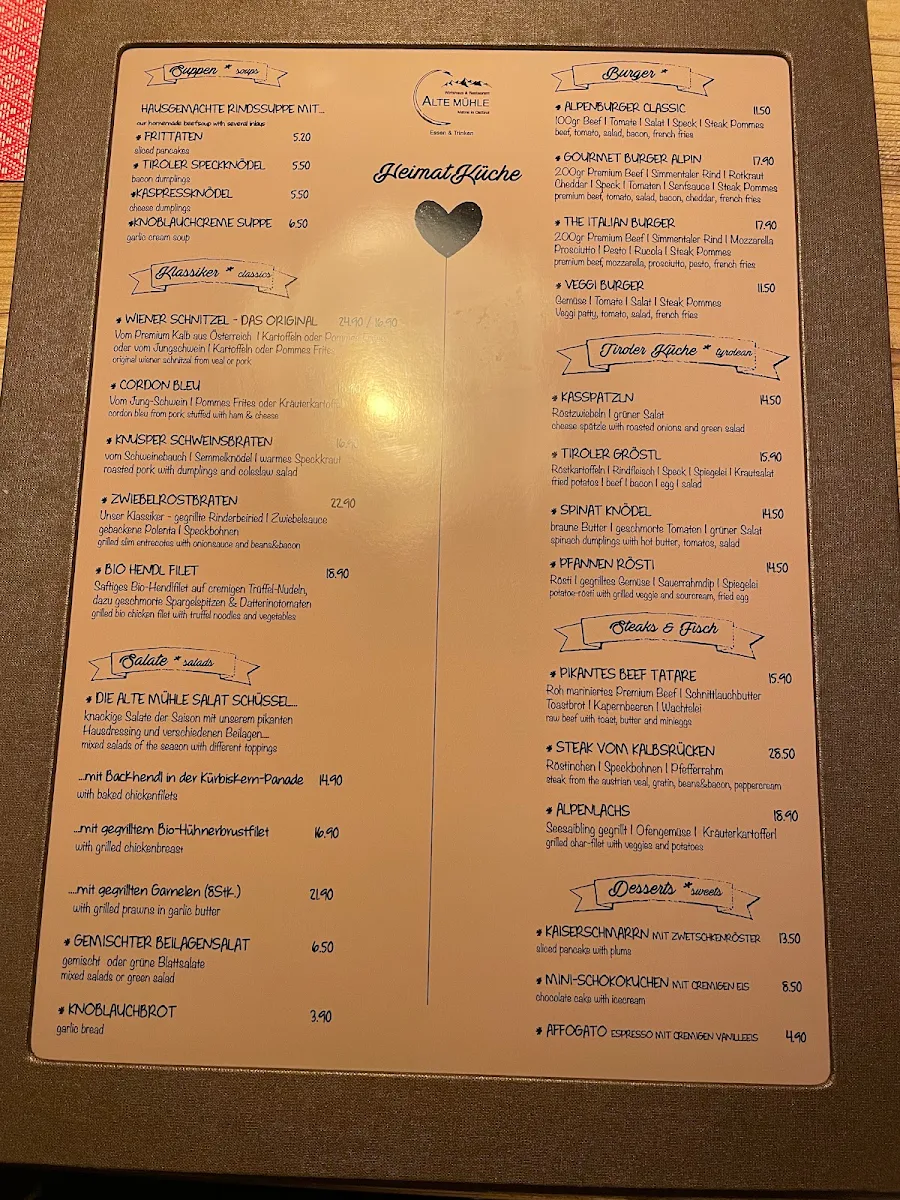 Suppen * soups
HAUSGEMACHTE RINDSSUPPE MIT...
our homemade beefsoup with several inlays
* FRITTATEN 5.20
sliced pancakes
* TIROLER SPECKKNÖDEL 5.50
bacon dumplings
*KASPRESSKNÖDEL 5.50
cheese dumplings
*KNOBLAUCHCREME SUPPE 6.50
garlic cream soup
Klassiker * classics
* WIENER SCHNITZEL - DAS ORIGINAL 24.90 / 16.90
Vom Premium Kalb aus Österreich | Kartoffeln oder
oder vom Jungschwein | Kartoffeln oder Pommes Frites
original wiener schnitzel from veal or pork
* CORDON BLEU
Vom Jung-Schwein | Pommes Frites oder
cordon bleu from pork stuffed with ham & cheese
* KNUSPER SCHWEINSBRATEN
vom Schweinebauch | Semmelknödel | warmes Speckkraut
roasted pork with dumplings and coleslaw salad
* ZWIEBELROSTBRATEN 22.90
Unser Klassiker - gegrillte Rinderbeiried | Zwiebelsauce
gebackene Polenta | Speckbohnen
grilled slim entrecotes with onionsauce and beans&bacon
* BIO HENDL FILET 18.90
Saftiges Bio-Hendlfilet auf cremigen Trüffel-Nudeln,
dazu geschmorte Spargelspitzen & Datterinotomaten
grilled bio chicken filet with truffel noodles and vegetables
Salate * salads
* DIE ALTE MÜHLE SALAT SCHÜSSEL...
knackige Salate der Saison mit unserem pikanten
Hausdressing und verschiedenen Beilagen....
mixed salads of the season with different toppings
...mit Backhendl in der Kürbiskern-Panade 14.90
with baked chickenfilets
...mit gegrilltem Bio-Hühnerbrustfilet 16.90
with grilled chickenbreast
....mit gegrillten Garnelen (8Stk.) 21.90
with grilled prawns in garlic butter
* GEMISCHTER BEILAGENSALAT 6.50
gemischt oder grüne Blattsalate
mixed salads or green salad
* KNOBLAUCHBROT 3.90
garlic bread
Wirtshaus & Restaurant
ALTE MÜHLE
Essen & Trinken
HeimatKüche
Burger *
* ALPENBURGER CLASSIC 11.50
100gr Beef | Tomate | Salat | Speck | Steak Pommes
beef, tomato, salad, bacon, french fries
* GOURMET BURGER ALPIN 17.90
200gr Premium Beef | Simmentaler Rind | Rotkraut
Cheddar | Speck | Tomaten | Senfsauce | Steak Pommes
premium beef, tomato, salad, bacon, cheddar, french fries
* THE ITALIAN BURGER 17.90
200gr Premium Beef | Simmentaler Rind | Mozzarella
Prosciutto | Pesto | Rucola | Steak Pommes
premium beef, mozzarella, prosciutto, pesto, french fries
* VEGGI BURGER 11.50
Gemüse | Tomate | Salat | Steak Pommes
Veggi patty, tomato, salad, french fries
Tiroler Küche * tyrolean
* KASSPATZLN 14.50
Röstzwiebeln | grüner Salat
cheese spätzle with roasted onions and green salad
* TIROLER GRÖSTL 15.90
Röstkartoffeln | Rindfleisch | Speck | Spiegelei | Krautsalat
fried potatos | beef | bacon | egg | salad
* SPINAT KNÖDEL 14.50
braune Butter | geschmorte Tomaten | grüner Salat
spinach dumplings with hot butter, tomatos, salad
* PFANNEN RÖSTI 14.50
Rösti | gegrilltes Gemüse | Sauerrahmdip | Spiegelei
potatoe-rösti with grilled veggie and sourcream, fried egg
Steaks & Fisch
* PIKANTES BEEF TATARE 15.90
Roh mariniertes Premium Beef | Schnittlauchbutter
Toastbrot | Kapernbeeren | Wachtelei
raw beef with toast, butter and minieggs
* STEAK VOM KALBSRÜCKEN 28.50
Röstinchen | Speckbohnen | Pfefferrahm
steak from the austrian veal, gratin, beans&bacon, peppercream
* ALPENLACHS 18.90
Seesaibling gegrillt | Ofengemüse | Kräuterkartofferl
grilled char-filet with veggies and potatoes
Desserts * sweets
* KAISERSCHMARRN MIT ZWETSCHKENRÖSTER 13.50
sliced pancake with plums
* MINI-SCHOKOKUCHEN MIT CREMIGEN EIS 8.50
chocolate cake with icecream
* AFFOGATO ESPRESSO MIT CREMIGEN VANILLEEIS 4.90